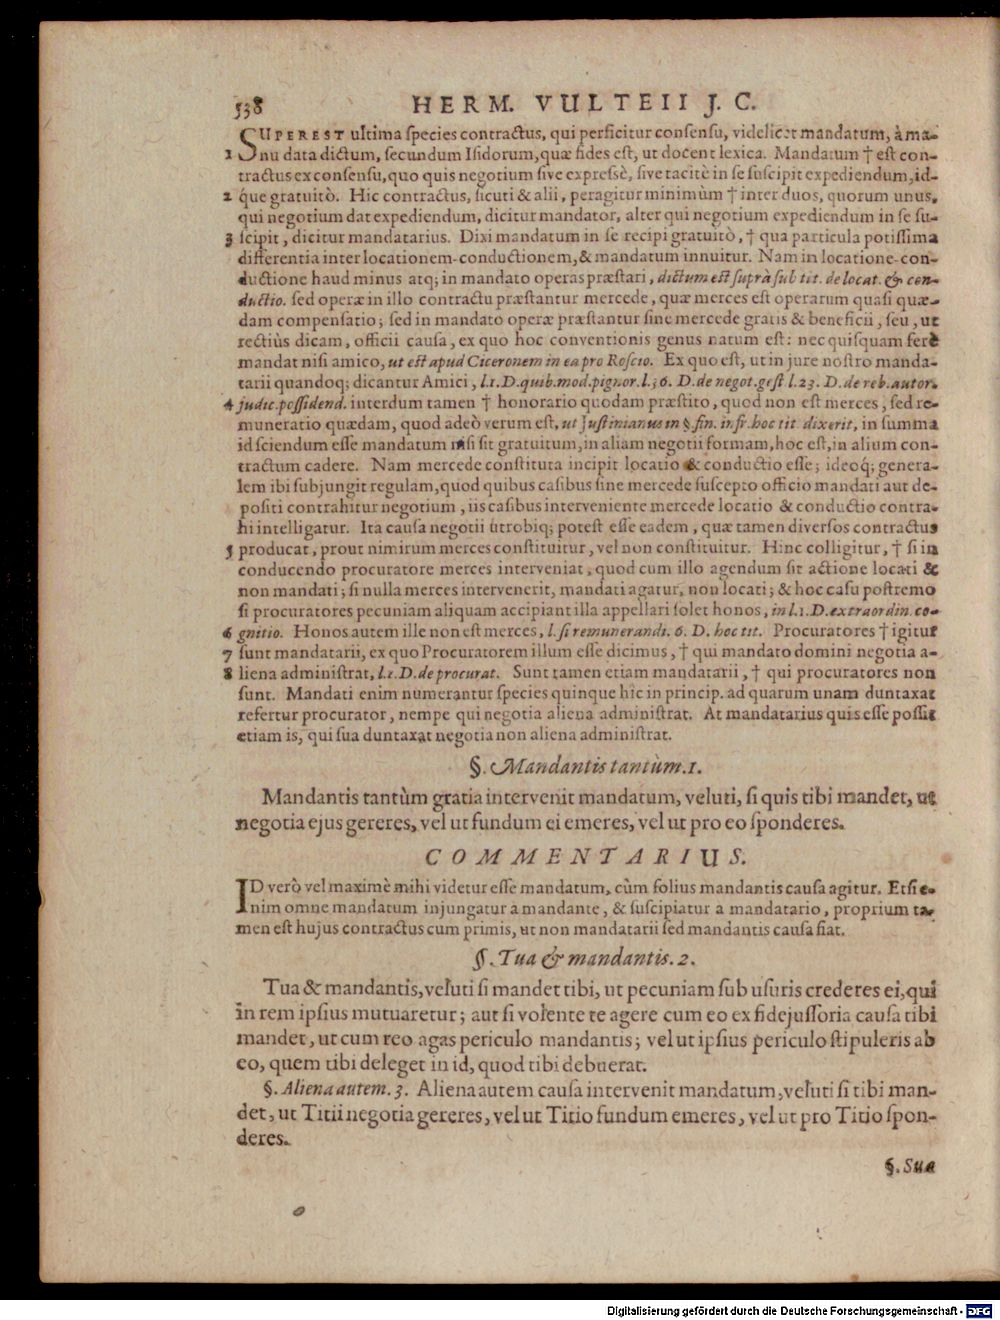 538 HERM. VULTEII J. C.
SUPEREST ultima ſpecies contractus, qui perficitur conſenſu, videlicet mandatum, à ma-
1 nu data dictum, ſecundum Iſidorum, quæ fides eſt, ut docent lexica. Mandatum † eſt con-
tractus ex conſenſu, quo quis negotium ſive expreſsè, ſive tacitè in ſe ſuſcipit expediendum, id-
2 q́ue gratuitò. Hic contractus, ſicuti & alii, peragitur minimùm † inter duos, quorum unus,
qui negotium dat expediendum, dicitur mandator, alter qui negotium expediendum in ſe ſu-
3 ſcipit, dicitur mandatarius. Dixi mandatum in ſe recipi gratuitò, † qua particula potiſſima
differentia inter locationem-conductionem, & mandatum innuitur. Nam in locatione-con-
ductione haud minus atq; in mandato operas præſtari, dictum eſt ſuprà ſub tit. de locat. & con-
ductio. ſed operæ in illo contractu præſtantur mercede, quæ merces eſt operarum quaſi quæ-
dam compenſatio; ſed in mandato operæ præſtantur ſine mercede gratis & beneficii, ſeu, ut
rectiùs dicam, officii cauſa, ex quo hoc conventionis genus natum eſt: nec quiſquam ferè
mandat niſi amico, ut eſt apud Ciceronem in ea pro Roſcio. Ex quo eſt, ut in jure noſtro manda-
tarii quandoq; dicantur Amici, l.1. D. quib. mod. pignor. l.36. D. de negot. geſt l.23. D. de reb. autor.
4 judic. poſſidend. interdum tamen † honorario quodam præſtito, quod non eſt merces, ſed re-
muneratio quædam, quod adeò verum eſt, ut Juſtinianus in §. fin. infr. hoc tit. dixerit, in ſumma
id ſciendum eſſe mandatum niſi ſit gratuitum, in aliam negotii formam, hoc eſt, in alium con-
tractum cadere. Nam mercede conſtituta incipit locatio & conductio eſſe; ideoq́; genera-
lem ibi ſubjungit regulam, quod quibus caſibus ſine mercede ſuſcepto officio mandati aut de-
poſiti contrahitur negotium, iis caſibus interveniente mercede locatio & conductio contra-
hi intelligatur. Ita cauſa negotii utrobiq; poteſt eſſe eadem, quæ tamen diverſos contractus
5 producat, prout nimirum merces conſtituitur, vel non conſtituitur. Hinc colligitur, † ſi in
conducendo procuratore merces interveniat, quod cum illo agendum ſit actione locati &
non mandati; ſi nulla merces intervenerit, mandati agatur, non locati; & hoc caſu poſtremo
ſi procuratores pecuniam aliquam accipiant illa appellari ſolet honos, in l.1. D. extraordin. co-
6 gnitio. Honos autem ille non eſt merces, l. ſi remunerandi. 6. D. hoc tit. Procuratores † igitur
7 ſunt mandatarii, ex quo Procuratorem illum eſſe dicimus, † qui mandato domini negotia a-
8 liena adminiſtrat, l.1. D. de procurat. Sunt tamen etiam mandatarii, † qui procuratores non
ſunt. Mandati enim numerantur ſpecies quinque hic in princip. ad quarum unam duntaxat
refertur procurator, nempe qui negotia aliena adminiſtrat. At mandatarius quis eſſe poſſit
etiam is, qui ſua duntaxat negotia non aliena adminiſtrat.
§. Mandantis tantùm. 1.
Mandantis tantùm gratia intervenit mandatum, veluti, ſi quis tibi mandet, ut
negotia ejus gereres, vel ut fundum ei emeres, vel ut pro eo ſponderes.
COMMENTARIUS.
ID verò vel maximè mihi videtur eſſe mandatum, cùm ſolius mandantis cauſa agitur. Etſi e-
nim omne mandatum injungatur a mandante, & ſuſcipiatur a mandatario, proprium ta-
men eſt hujus contractus cum primis, ut non mandatarii ſed mandantis cauſa fiat.
§. Tua & mandantis. 2.
Tua & mandantis, veluti ſi mandet tibi, ut pecuniam ſub uſuris crederes ei, qui
in rem ipſius mutuaretur; aut ſi volente te agere cum eo ex fidejuſſoria cauſa tibi
mandet, ut cum reo agas periculo mandantis; vel ut ipſius periculo ſtipuleris ab
eo, quem tibi deleget in id, quod tibi debuerat.
§. Aliena autem. 3. Aliena autem cauſa intervenit mandatum, veluti ſi tibi man-
det, ut Titii negotia gereres, vel ut Titio fundum emeres, vel ut pro Titio ſpon-
deres.
§. Sua
Digitalisierung gefördert durch die Deutsche Forschungsgemeinschaft - DFG